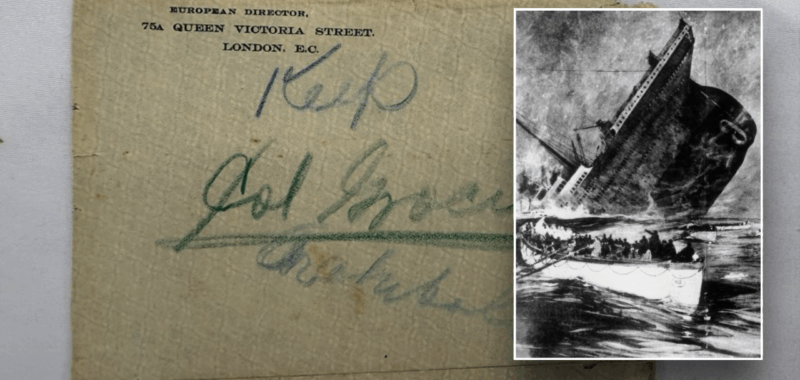 EUROPEAN DIRECTOR,
75A QUEEN VICTORIA STREET.
LONDON. E.C.
Keep
Col Graci
Archibal